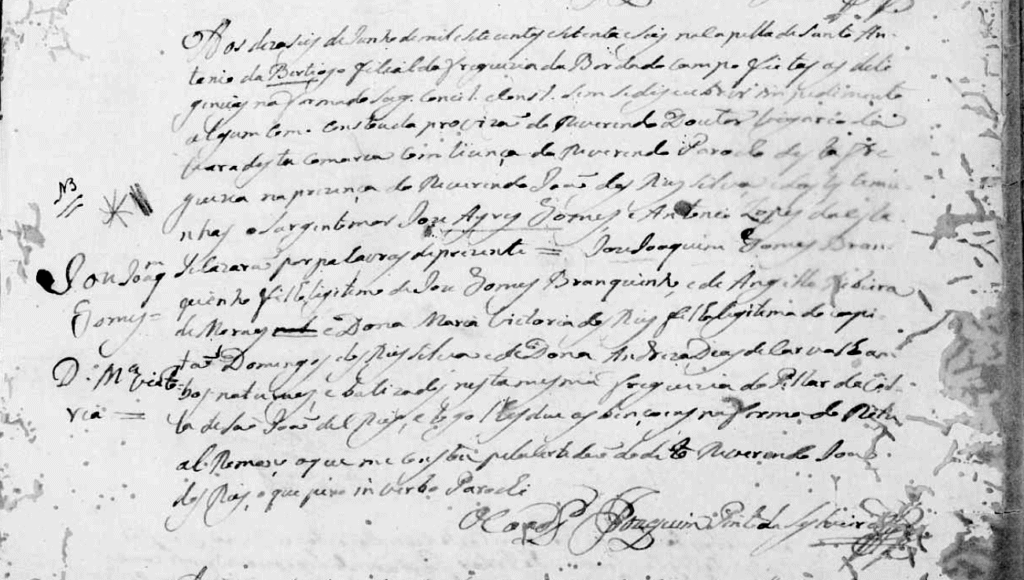 Aos dezaseis de Junho de mil setecentos e setenta e seis na Capella de Santo An-
tonio da Bertioga filial da freguezia da Borda do campo feitas as deli
gencias na forma do Sag. Concil. e Const. sem se descubrir impedimento
algum com. consta da provizaõ do Reverendo Doutor Vigario da
Vara desta comarca com licença do Reverendo Parocho desta Fre
guezia na prezença do Reverendo Joaõ dos Reys Silva e das testemu-
nhas o Sargentomor Joze Ayres Gomes e Antonio Lopes
NB
Se cazaraõ por palavras de prezente = Joze Joaquim Gomes Bran-
quinho filho legitimo de Joze Gomes Branquinho, e de Angella Ribeira
de Moraes e Dona Maria Victoria dos Reys filha legitima do capi-
taõ Domingos dos Reys Silva e de Dona Andreza Dias de Carvalho am-
bos naturaes e baptizados nesta mesma freguezia do Pillar da Cid.
Joze Joaqm
Gomes =
D. Ma Victo
ria =
ta de Saõ Joaõ del Rey, e logo lhes deu as bençoens na forma do Ritu
al Romano o que me constou pela certidaõ do dito Reverendo Joaõ
dos Reys, o que juro in verbo Parochi
O Coad.or Joaquim Pinto da Sylveira